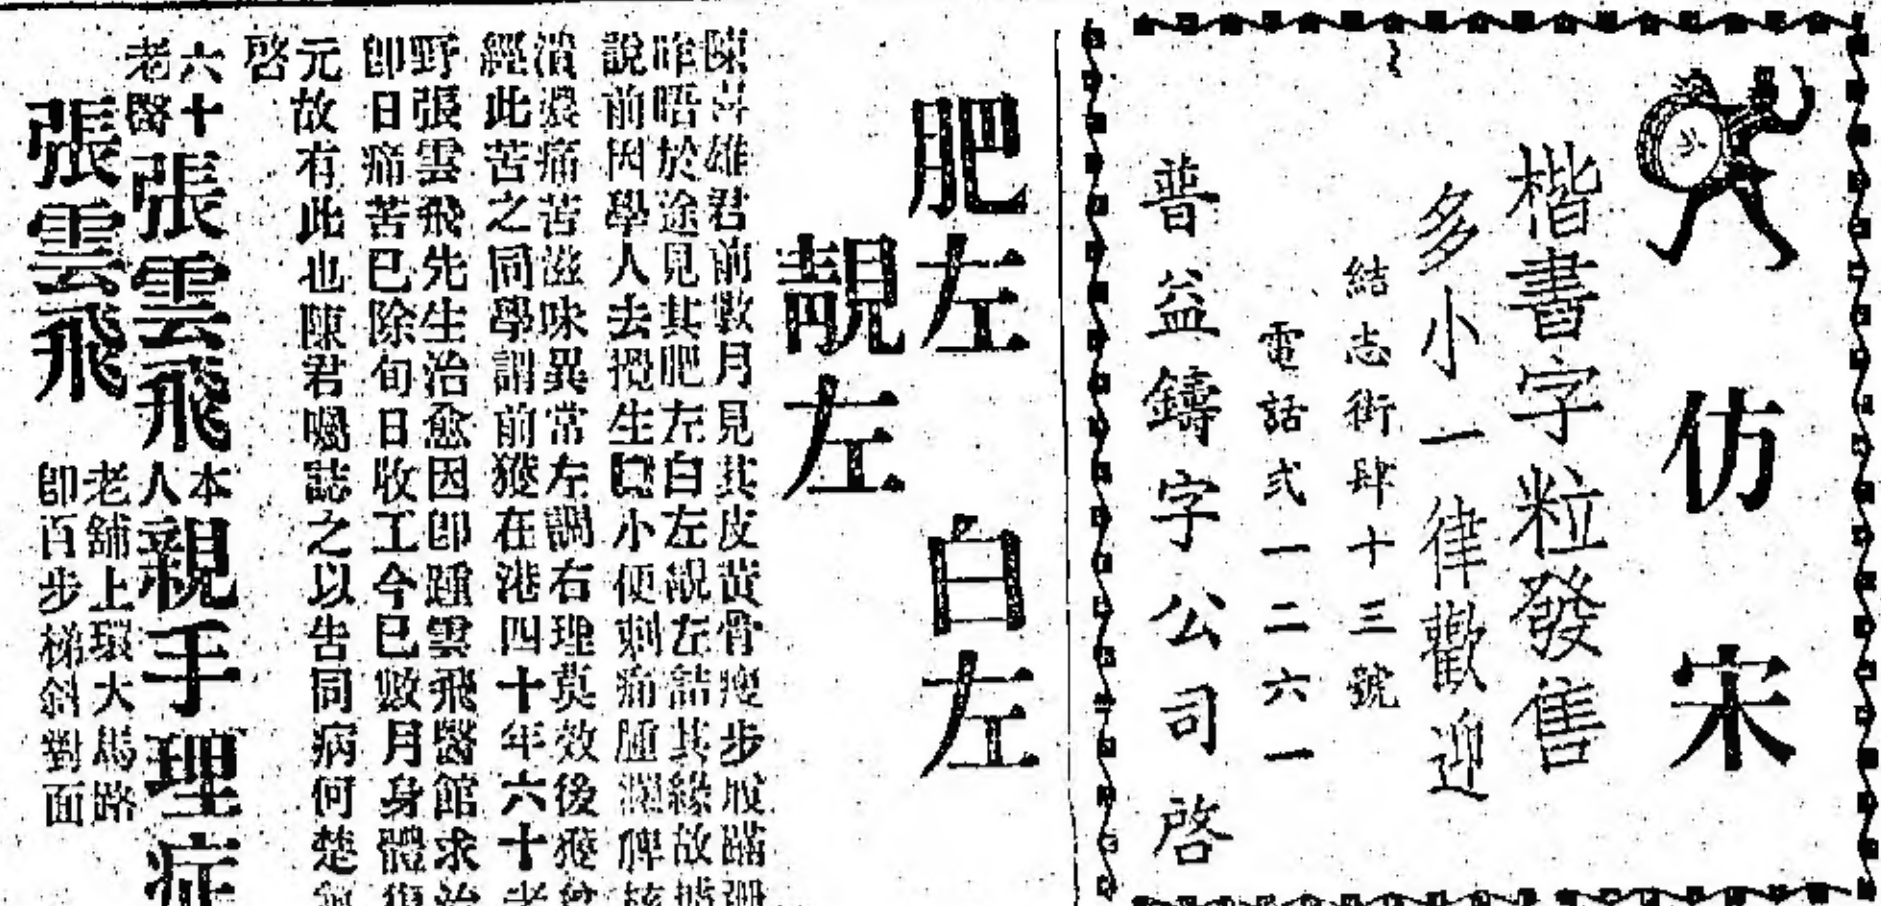 仿宋
楷書字粒發售
多小一律歡迎
結志街肆十三號
電話弍一二六一
普益鑄字公司啓
肥左 白左
靚左
陳 雄君前數月見其皮黃骨瘦步履蹣跚
昨晤於途見其肥左白左靚左詰其緣故據
說前因學人去攪生 小便刺痛腫爛 核
潰濃痛苦滋味異常左調右理莫效後獲曾
經此苦之同學謂前獲在港四十年六十老
野張雲飛先生治愈因即踵雲飛醫館求治
即日痛苦已除旬日收工今已數月身體復
元故有此也陳君囑誌之以告同病何楚
啓
六十老醫張雲飛本人親手理症
張雲飛
老舖上環大馬路
即百步梯斜對面